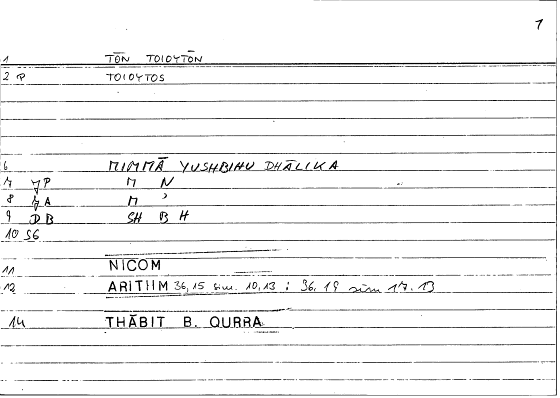 1
1 TŌN TOIOYTŌN
2 P TOIOYTOS
6 MIMMĀ YUSHBIHU DHĀLIKA
7 YP M N
8 YA M ʾ
9 DB SH B H
10 56
11 NICOM
12 ARITHM 36,15 sim. 10,13 ; 36,19 sim 17.13
14 THĀBIT B. QURRA